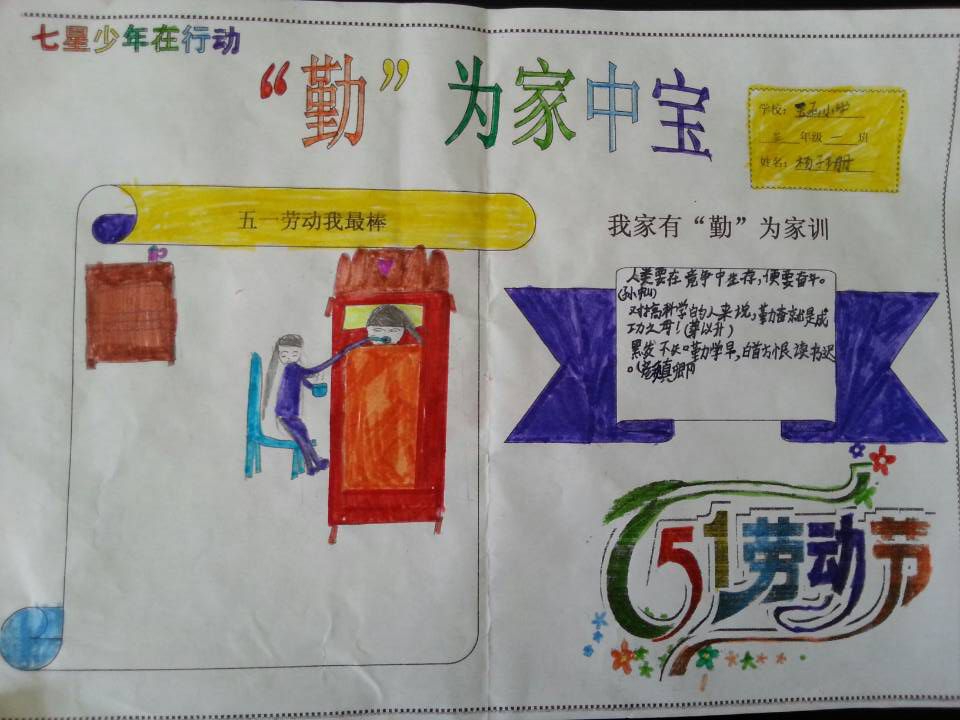 七星少年在行动
“勤”为家中宝
学校：
年级 一 班
姓名：
五一劳动我最棒
我家有“勤”为家训
人类要在竞争中生存，便要奋斗。
(孙中山)
对搞科学的人来说，勤奋就是成
功之母！(茅以升)
黑发不知勤学早，白首方悔读书迟
。(颜真卿)
51劳动节